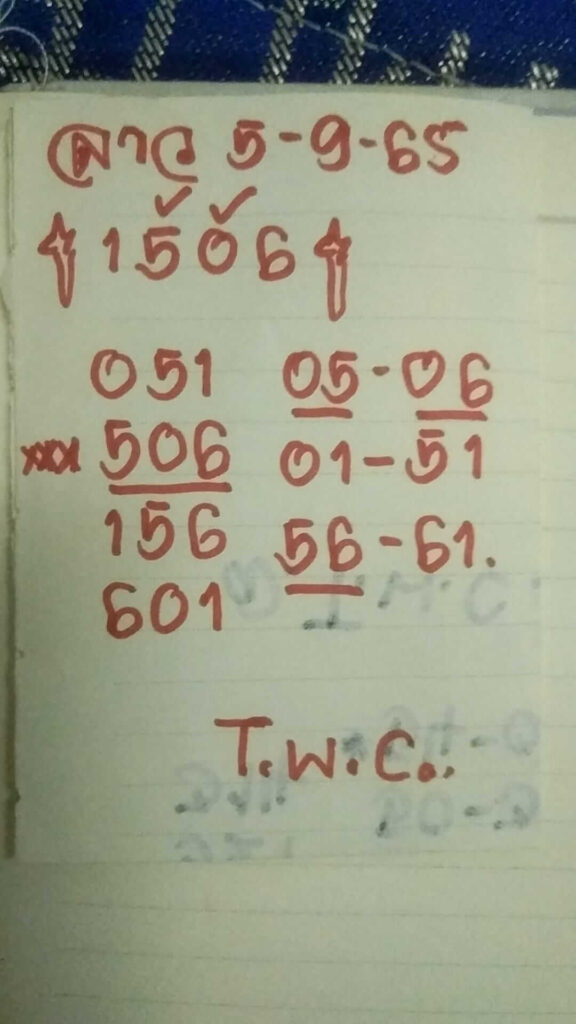 ลาว 5-9-65
1506
051 05-06
xxx 506 01-51
156 56-61.
601
T.W.C..